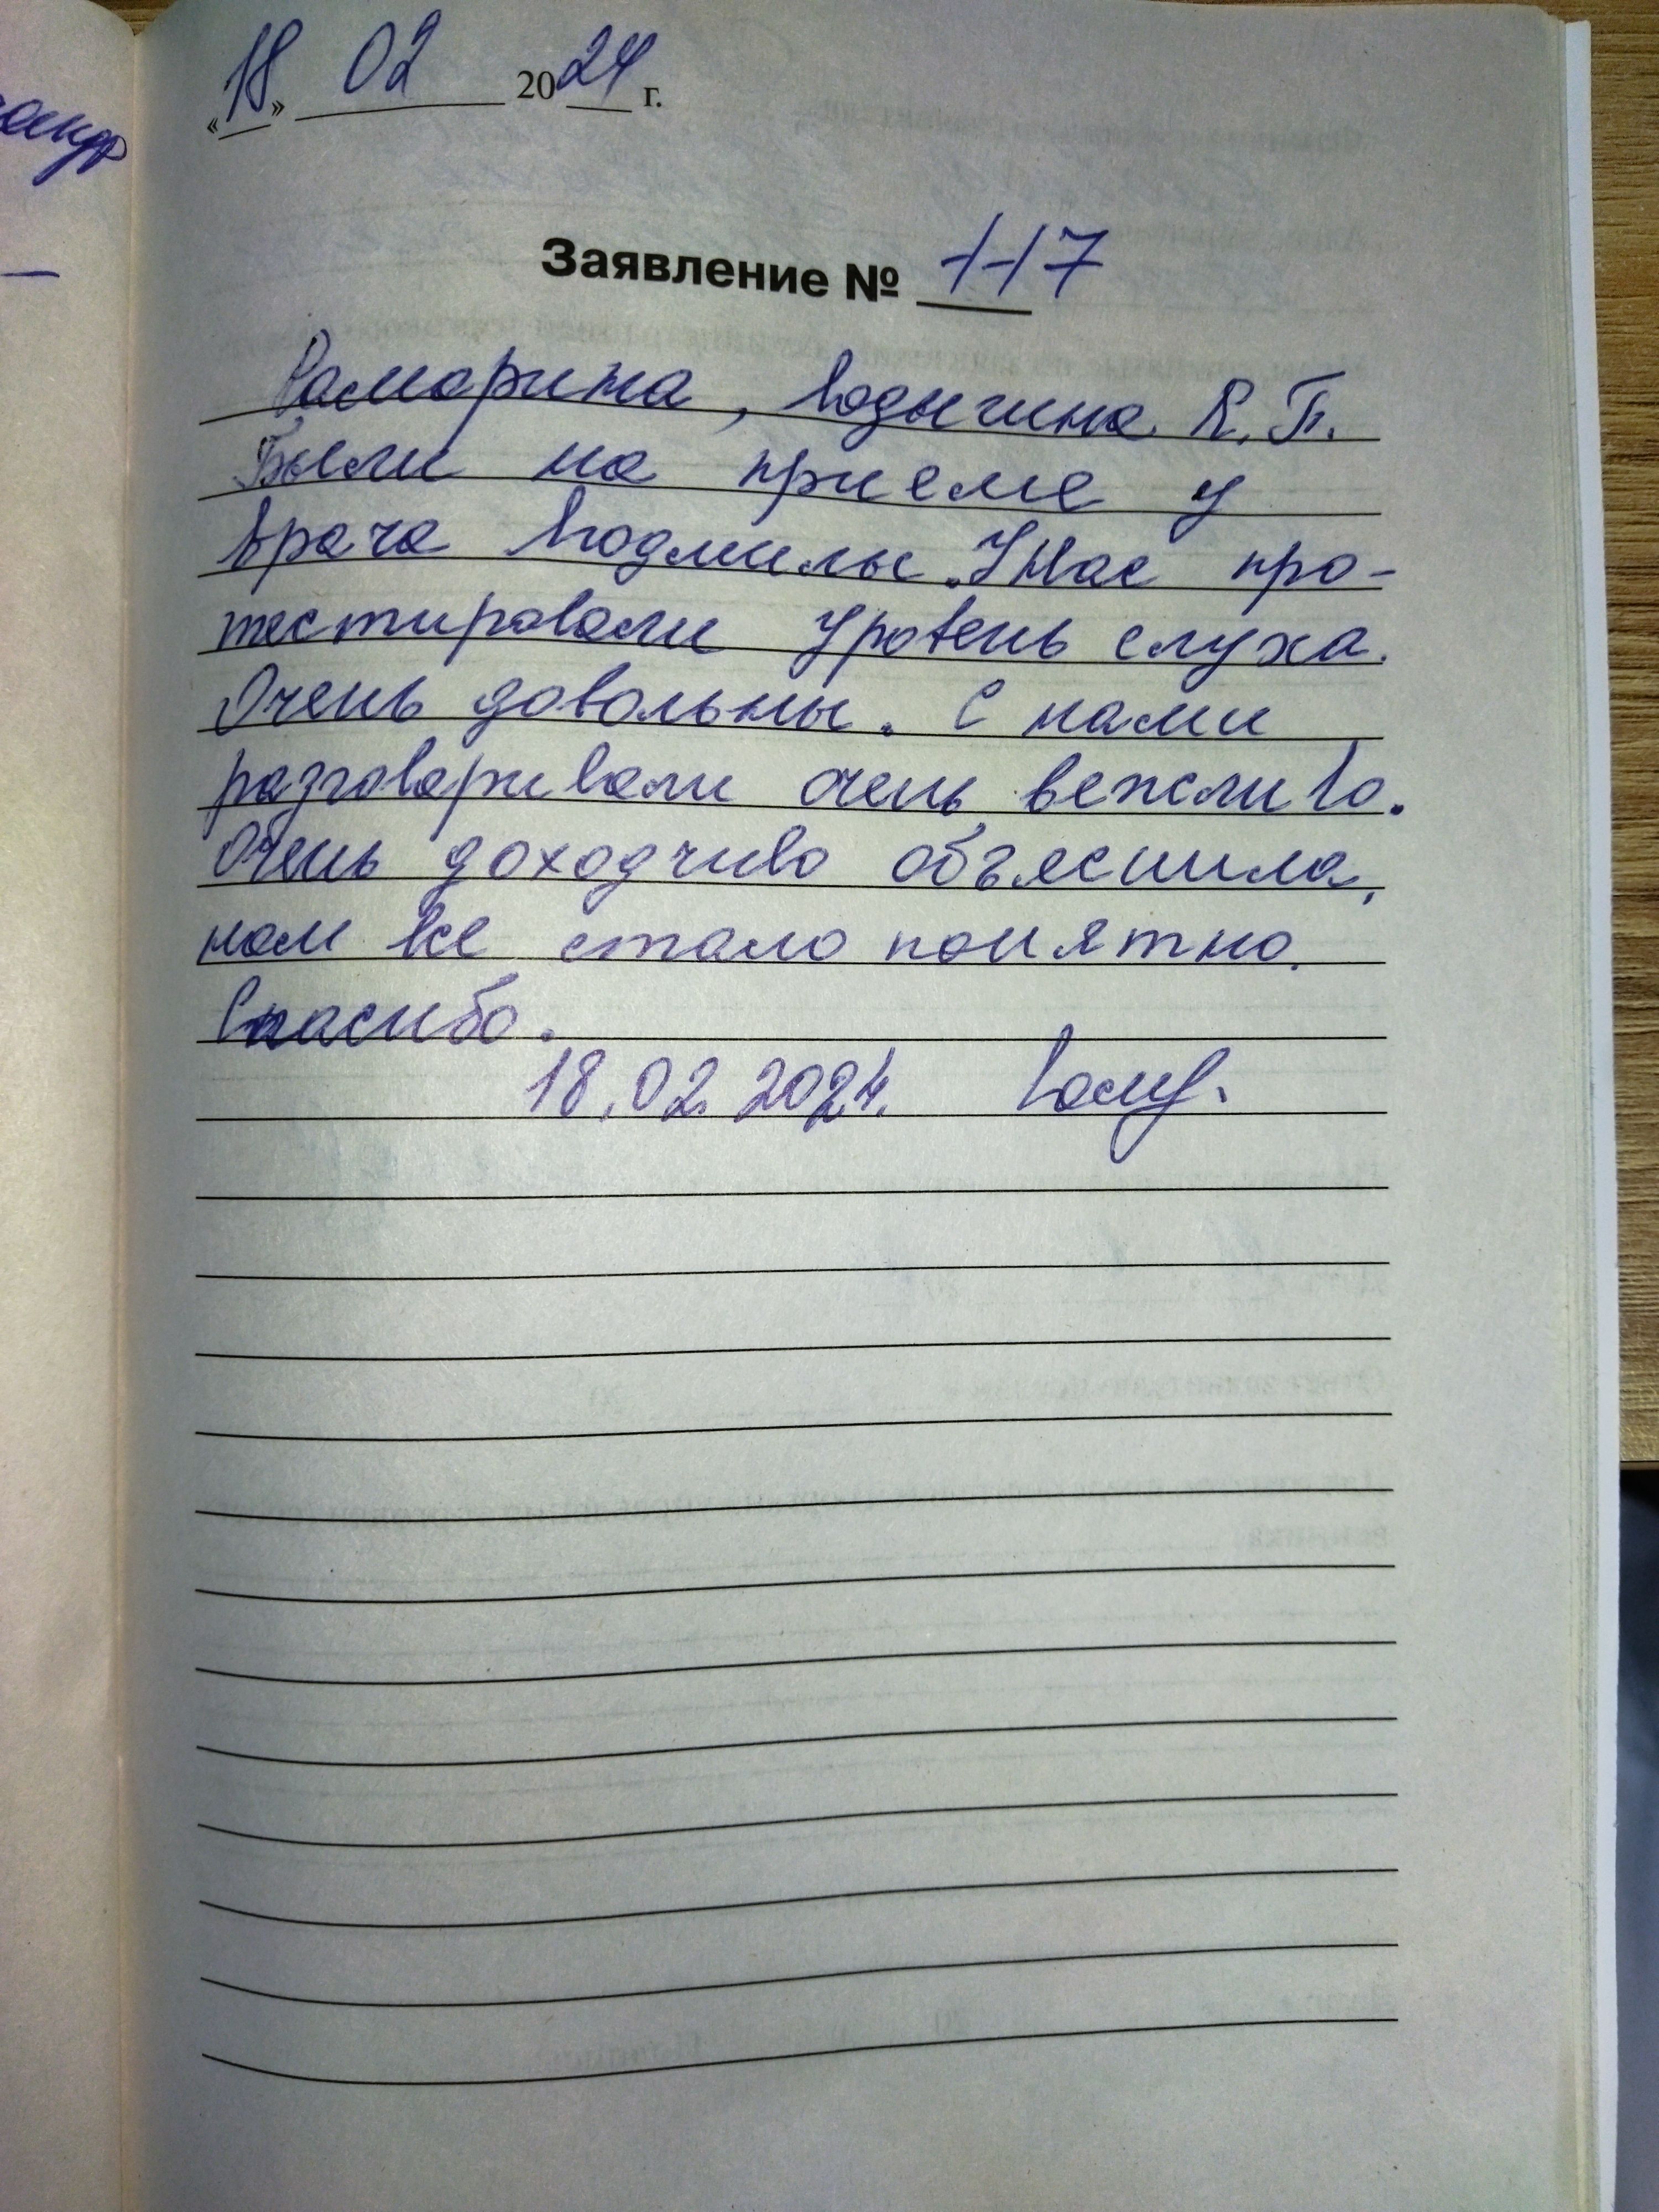 «18» 02 2024 г.
Заявление № 117
Были на приеме у
врача Людмилы. У нас про-
тестировали уровень слуха.
Очень довольны. С нами
разговаривали очень вежливо.
Очень доходчиво объяснила,
нам все стало понятно.
Спасибо.
18.02.2024.